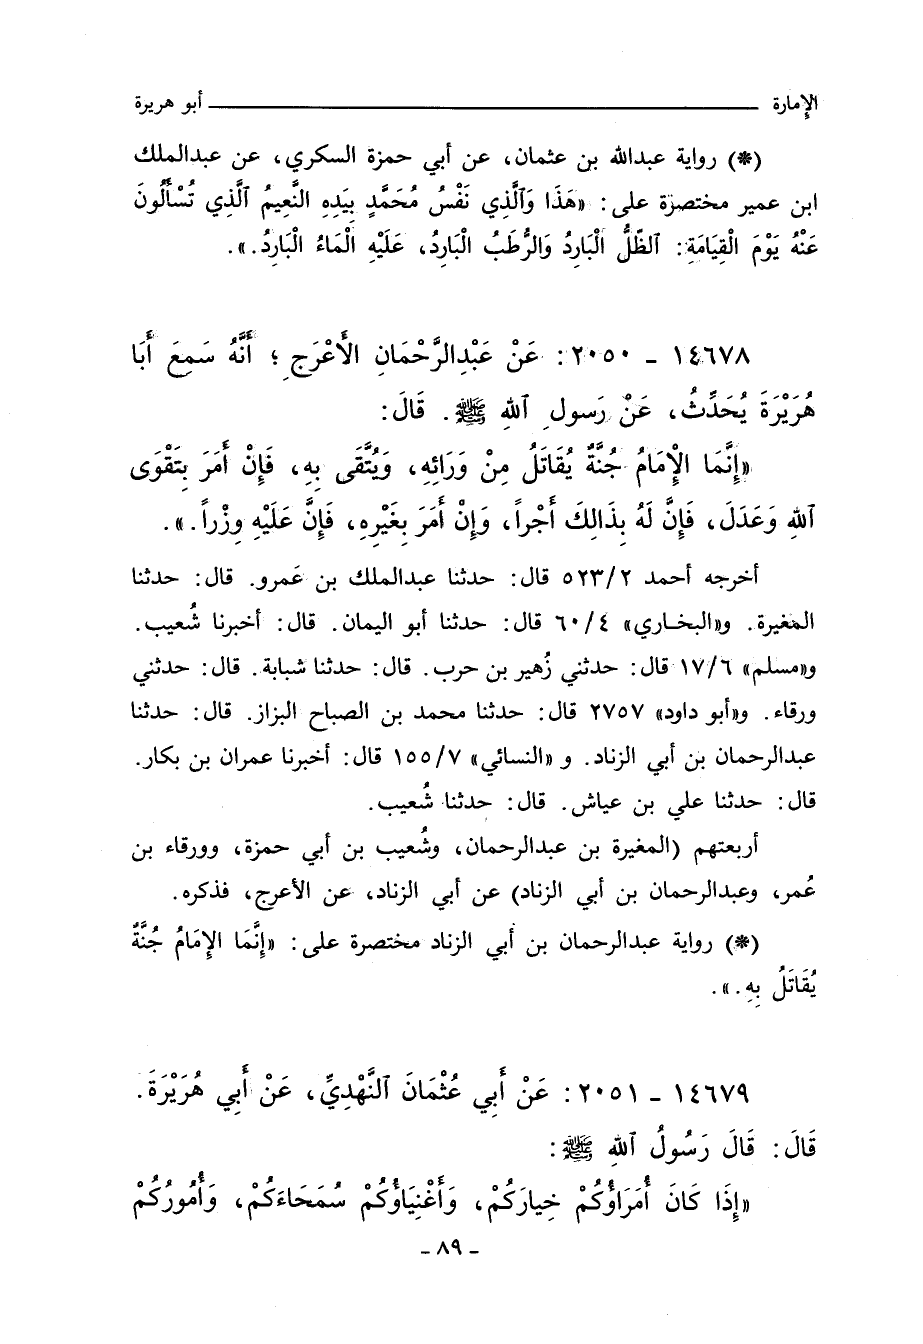 الإمارة ــــــــــــــــــــ أبو هريرة
(*) رواية عبدالله بن عثمان، عن أبي حمزة السكري، عن عبدالملك
ابن عمير مختصرة على: «هَذَا وَٱلَّذِي نَفْسُ مُحَمَّدٍ بِيَدِهِ النَّعِيمُ الَّذِي تُسْأَلُونَ
عَنْهُ يَوْمَ الْقِيَامَةِ: ٱلظِّلُّ الْبَارِدُ وَالرُّطَبُ الْبَارِدُ، عَلَيْهِ الْمَاءُ الْبَارِدُ.».
١٤٦٧٨ - ٢٠٥٠: عَنْ عَبْدِالرَّحْمَانِ الأَعْرَجِ؛ أَنَّهُ سَمِعَ أَبَا
هُرَيْرَةَ يُحَدِّثُ، عَنْ رَسولِ ٱللهِ ﷺ. قَالَ:
«إِنَّمَا الإِمَامُ جُنَّةٌ يُقَاتَلُ مِنْ وَرَائِهِ، وَيُتَّقَى بِهِ، فَإِنْ أَمَرَ بِتَقْوَى
ٱللهِ وَعَدَلَ، فَإِنَّ لَهُ بِذَالِكَ أَجْراً، وَإِنْ أَمَرَ بِغَيْرِهِ، فَإِنَّ عَلَيْهِ وِزْراً.».
أخرجه أحمد ٥٢٣/٢ قال: حدثنا عبدالملك بن عَمرو. قال: حدثنا
المغيرة. و«البخاري» ٦٠/٤ قال: حدثنا أبو اليمان. قال: أخبرنا شُعيب.
و«مسلم» ١٧/٦ قال: حدثني زُهير بن حرب. قال: حدثنا شبابة. قال: حدثني
ورقاء. و«أبو داود» ٢٧٥٧ قال: حدثنا محمد بن الصباح البزاز. قال: حدثنا
عبدالرحمان بن أبي الزناد. و «النسائي» ١٥٥/٧ قال: أخبرنا عمران بن بكار.
قال: حدثنا علي بن عياش. قال: حدثنا شُعيب.
أربعتهم (المغيرة بن عبدالرحمان، وشُعيب بن أبي حمزة، وورقاء بن
عُمر، وعبدالرحمان بن أبي الزناد) عن أبي الزناد، عن الأعرج، فذكره.
(*) رواية عبدالرحمان بن أبي الزناد مختصرة على: «إِنَّمَا الإِمَامُ جُنَّةٌ
يُقَاتَلُ بِهِ.».
١٤٦٧٩ - ٢٠٥١: عَنْ أَبِي عُثْمَانَ ٱلنَّهْدِيِّ، عَنْ أَبِي هُرَيْرَةَ.
قَالَ: قَالَ رَسُولُ ٱللهِ ﷺ:
«إِذَا كَانَ أُمَرَاؤُكُمْ خِيَارَكُمْ، وَأَغْنِيَاؤُكُمْ سُمَحَاءَكُمْ، وَأُمُورُكُمْ
- ٨٩ -